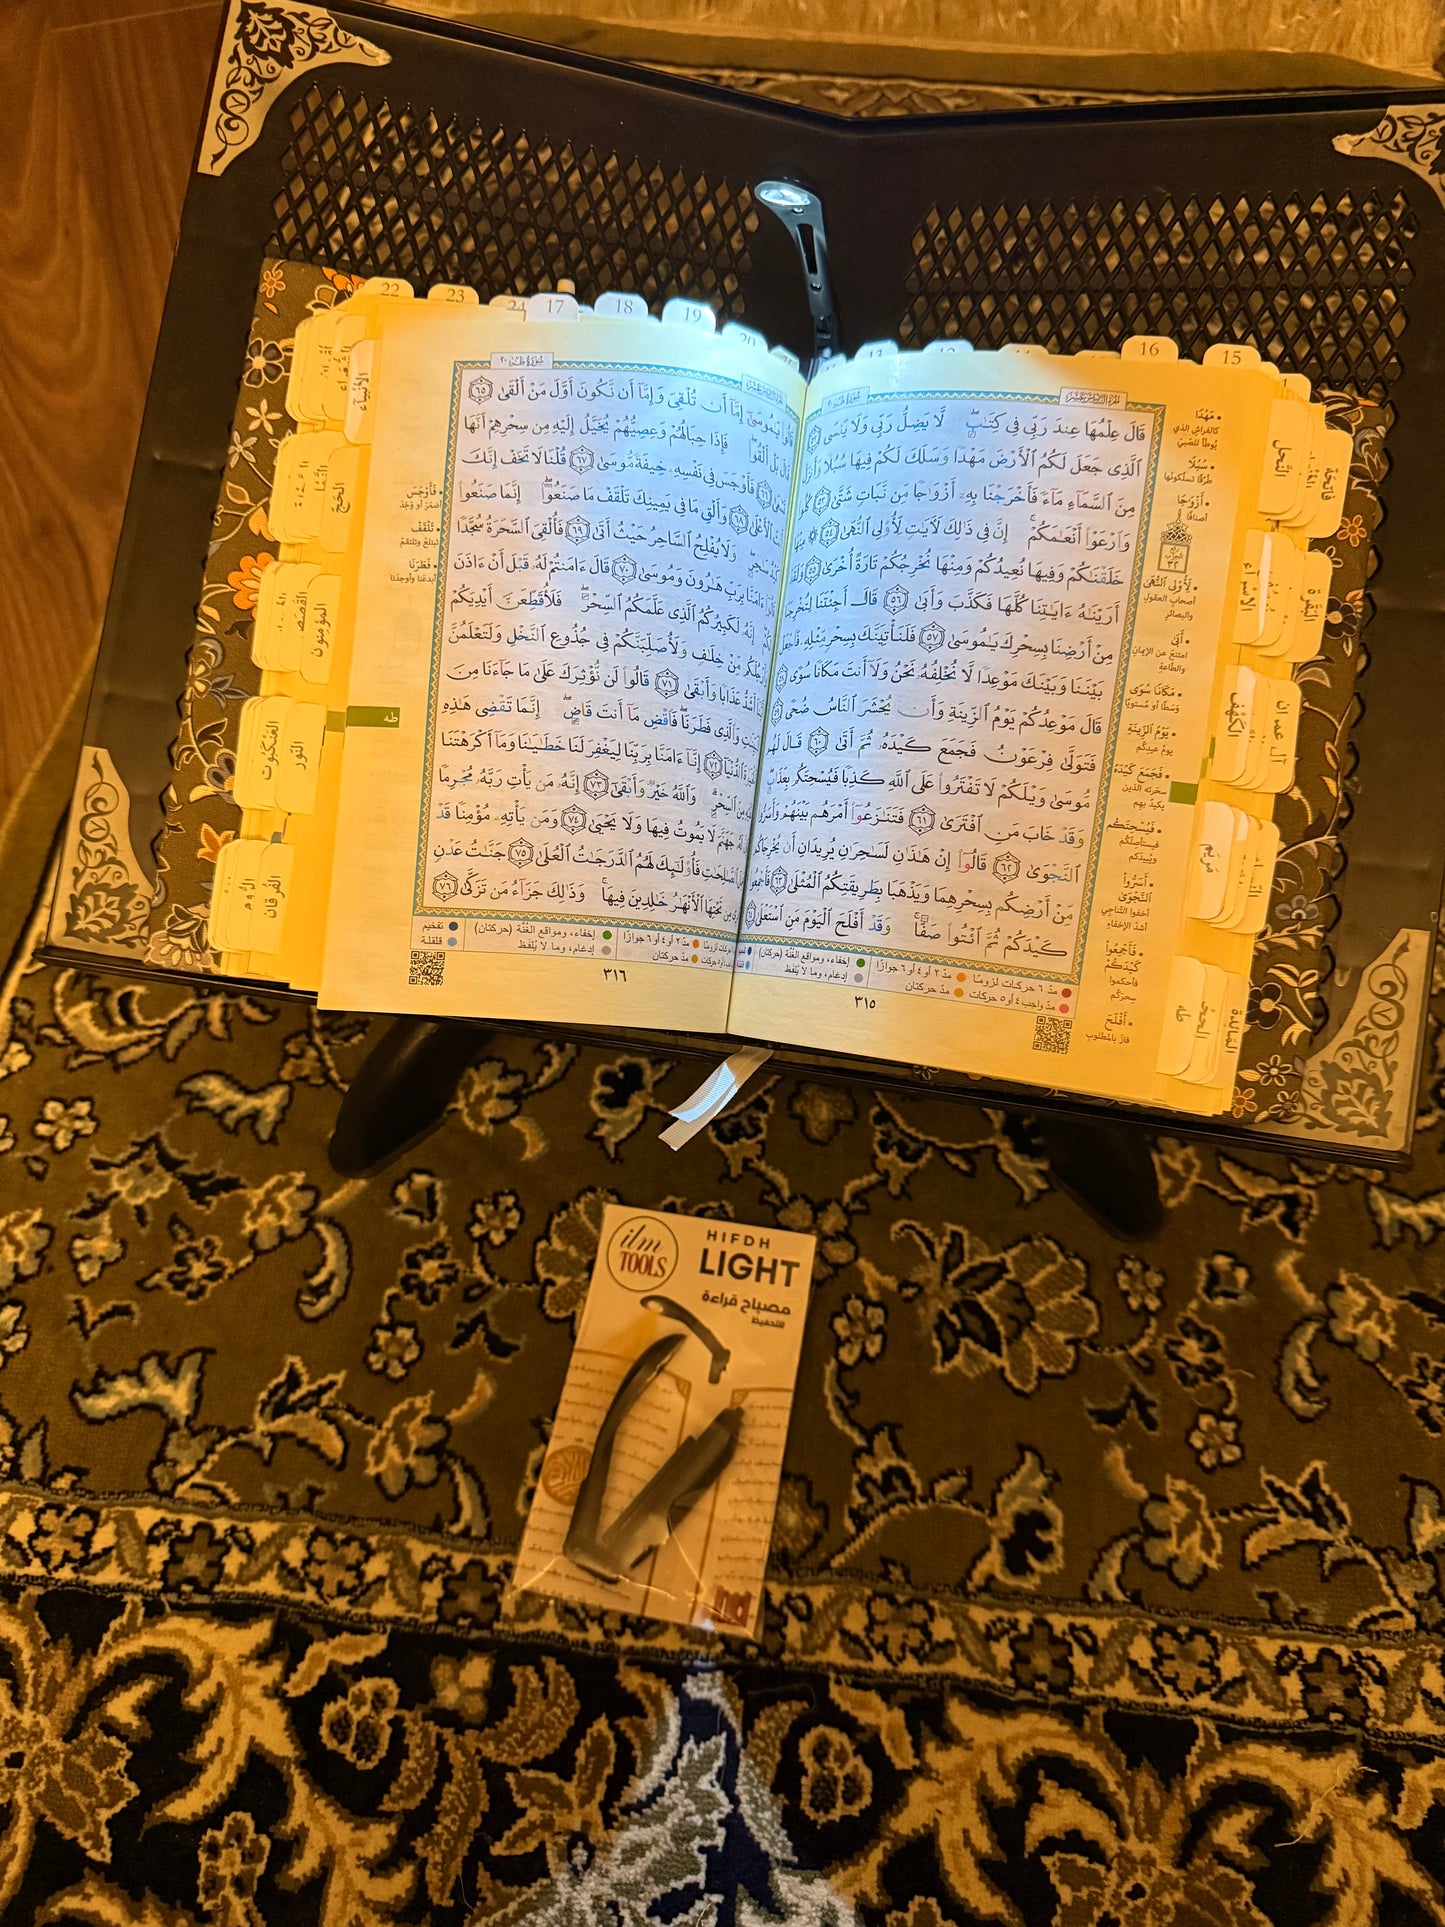 22 23 24 17 18 19 20
16 15
قَالَ عِلْمُهَا عِندَ رَبِّي فِي كِتَٰبٍ لَّا يَضِلُّ رَبِّي وَلَا يَنسَى ٥٢
الَّذِي جَعَلَ لَكُمُ الْأَرْضَ مَهْدًا وَسَلَكَ لَكُمْ فِيهَا سُبُلًا وَأَنزَلَ
مِنَ السَّمَاءِ مَاءً فَأَخْرَجْنَا بِهِ أَزْوَاجًا مِّن نَّبَاتٍ شَتَّىٰ ٥٣ كُلُوا
وَارْعَوْا أَنْعَٰمَكُمْ إِنَّ فِي ذَٰلِكَ لَأٓيَٰتٍ لِّأُولِي النُّهَىٰ ٥٤ مِنْهَا
خَلَقْنَٰكُمْ وَفِيهَا نُعِيدُكُمْ وَمِنْهَا نُخْرِجُكُمْ تَارَةً أُخْرَىٰ ٥٥ وَلَقَدْ
أَرَيْنَٰهُ ءَايَٰتِنَا كُلَّهَا فَكَذَّبَ وَأَبَىٰ ٥٦ قَالَ أَجِئْتَنَا لِتُخْرِجَنَا
مِنْ أَرْضِنَا بِسِحْرِكَ يَٰمُوسَىٰ ٥٧ فَلَنَأْتِيَنَّكَ بِسِحْرٍ مِّثْلِهِ فَاجْعَلْ
بَيْنَنَا وَبَيْنَكَ مَوْعِدًا لَّا نُخْلِفُهُ نَحْنُ وَلَا أَنتَ مَكَانًا سُوًى ٥٨
قَالَ مَوْعِدُكُمْ يَوْمُ الزِّينَةِ وَأَن يُحْشَرَ النَّاسُ ضُحًى ٥٩
فَتَوَلَّىٰ فِرْعَوْنُ فَجَمَعَ كَيْدَهُ ثُمَّ أَتَىٰ ٦٠ قَالَ لَهُم
مُّوسَىٰ وَيْلَكُمْ لَا تَفْتَرُوا عَلَى اللَّهِ كَذِبًا فَيُسْحِتَكُم بِعَذَابٍ
وَقَدْ خَابَ مَنِ افْتَرَىٰ ٦١ فَتَنَٰزَعُوا أَمْرَهُم بَيْنَهُمْ وَأَسَرُّوا
النَّجْوَىٰ ٦٢ قَالُوا إِنْ هَٰذَٰنِ لَسَٰحِرَٰنِ يُرِيدَانِ أَن يُخْرِجَاكُم
مِّنْ أَرْضِكُم بِسِحْرِهِمَا وَيَذْهَبَا بِطَرِيقَتِكُمُ الْمُثْلَىٰ ٦٣ فَأَجْمِعُوا
كَيْدَكُمْ ثُمَّ ائْتُوا صَفًّا وَقَدْ أَفْلَحَ الْيَوْمَ مَنِ اسْتَعْلَىٰ ٦٤
• مَهْدًا
كالفراش الذي
يُوطأ للصّبيّ
• سُبُلًا
طرُقًا تسلُكونَها
• أَزْوَٰجًا
أصنافًا
• لِّأُولِي النُّهَىٰ
أصحاب العقول
والبصائر
• أَبَىٰ
امتنَع عن الإيمان
والطّاعة
• مَكَانًا سُوًى
وَسَطًا أو مُستويًا
• يَوْمُ الزِّينَةِ
يومُ عيدِكُم
• فَجَمَعَ كَيْدَهُ
سحَرته الذين
يكيدُ بهم
• فَيُسْحِتَكُم
فيستأصِلَكُم
ويُبيدَكم
• أَسَرُّوا
النَّجْوَىٰ
أخفوا التّناجي
أشدّ الإخفاء
• فَأَجْمِعُوا
كَيْدَكُمْ
فأحكموا
سِحرَكُم
• أَفْلَحَ
فازَ بالمطلوبِ
مدّ ٦ حركات لزومًا • مدّ ٢ أو ٤ أو ٦ جوازًا • إخفاء، ومواقع الغُنّة (حركتان)
مدّ واجب ٤ أو ٥ حركات • مدّ حركتان • إدغام، وما لا يُلفَظ
٣١٥
سُورَةُ طه ٢٠
قَالُوا يَٰمُوسَىٰ إِمَّا أَن تُلْقِيَ وَإِمَّا أَن نَّكُونَ أَوَّلَ مَنْ أَلْقَىٰ ٦٥
قَالَ بَلْ أَلْقُوا فَإِذَا حِبَالُهُمْ وَعِصِيُّهُمْ يُخَيَّلُ إِلَيْهِ مِن سِحْرِهِمْ أَنَّهَا
٦٦ فَأَوْجَسَ فِي نَفْسِهِ خِيفَةً مُّوسَىٰ ٦٧ قُلْنَا لَا تَخَفْ إِنَّكَ
أَنتَ الْأَعْلَىٰ ٦٨ وَأَلْقِ مَا فِي يَمِينِكَ تَلْقَفْ مَا صَنَعُوا إِنَّمَا صَنَعُوا
كَيْدُ سَٰحِرٍ وَلَا يُفْلِحُ السَّاحِرُ حَيْثُ أَتَىٰ ٦٩ فَأُلْقِيَ السَّحَرَةُ سُجَّدًا
قَالُوا ءَامَنَّا بِرَبِّ هَٰرُونَ وَمُوسَىٰ ٧٠ قَالَ ءَامَنتُمْ لَهُ قَبْلَ أَنْ ءَاذَنَ
إِنَّهُ لَكَبِيرُكُمُ الَّذِي عَلَّمَكُمُ السِّحْرَ فَلَأُقَطِّعَنَّ أَيْدِيَكُمْ
وَأَرْجُلَكُم مِّنْ خِلَٰفٍ وَلَأُصَلِّبَنَّكُمْ فِي جُذُوعِ النَّخْلِ وَلَتَعْلَمُنَّ
أَشَدُّ عَذَابًا وَأَبْقَىٰ ٧١ قَالُوا لَن نُّؤْثِرَكَ عَلَىٰ مَا جَاءَنَا مِنَ
وَالَّذِي فَطَرَنَا فَاقْضِ مَا أَنتَ قَاضٍ إِنَّمَا تَقْضِي هَٰذِهِ
الدُّنْيَا ٧٢ إِنَّا ءَامَنَّا بِرَبِّنَا لِيَغْفِرَ لَنَا خَطَٰيَٰنَا وَمَا أَكْرَهْتَنَا
مِنَ السِّحْرِ وَاللَّهُ خَيْرٌ وَأَبْقَىٰ ٧٣ إِنَّهُ مَن يَأْتِ رَبَّهُ مُجْرِمًا
جَهَنَّمَ لَا يَمُوتُ فِيهَا وَلَا يَحْيَىٰ ٧٤ وَمَن يَأْتِهِ مُؤْمِنًا قَدْ
الصَّٰلِحَٰتِ فَأُولَٰئِكَ لَهُمُ الدَّرَجَٰتُ الْعُلَىٰ ٧٥ جَنَّٰتُ عَدْنٍ
تَحْتِهَا الْأَنْهَٰرُ خَٰلِدِينَ فِيهَا وَذَٰلِكَ جَزَاءُ مَن تَزَكَّىٰ ٧٦
• فَأَوْجَسَ
أضمَرَ أو وَجَد
• تَلْقَفْ
تبتلِعْ وتلتقِمْ
• فَطَرَنَا
أبدعَنا وأوجدَنا
مدّ ٢ أو ٤ أو ٦ جوازًا • إخفاء، ومواقع الغُنّة (حركتان) • تفخيم
مدّ حركتان • إدغام، وما لا يُلفَظ • قلقلة
٣١٦
طه
الأنبيَاء
الحَجّ
المؤمنون
القَصَص
النّور
العَنكبوت
الفُرقان
الرُّوم
النّحل
الإسراء
الكهف
مريَم
طه
الحجر
فَاتحَة
البَقَرة
آل عمران
المَائدة
ilm
TOOLS
HIFDH
LIGHT
مصباح قراءة
للتحفيظ